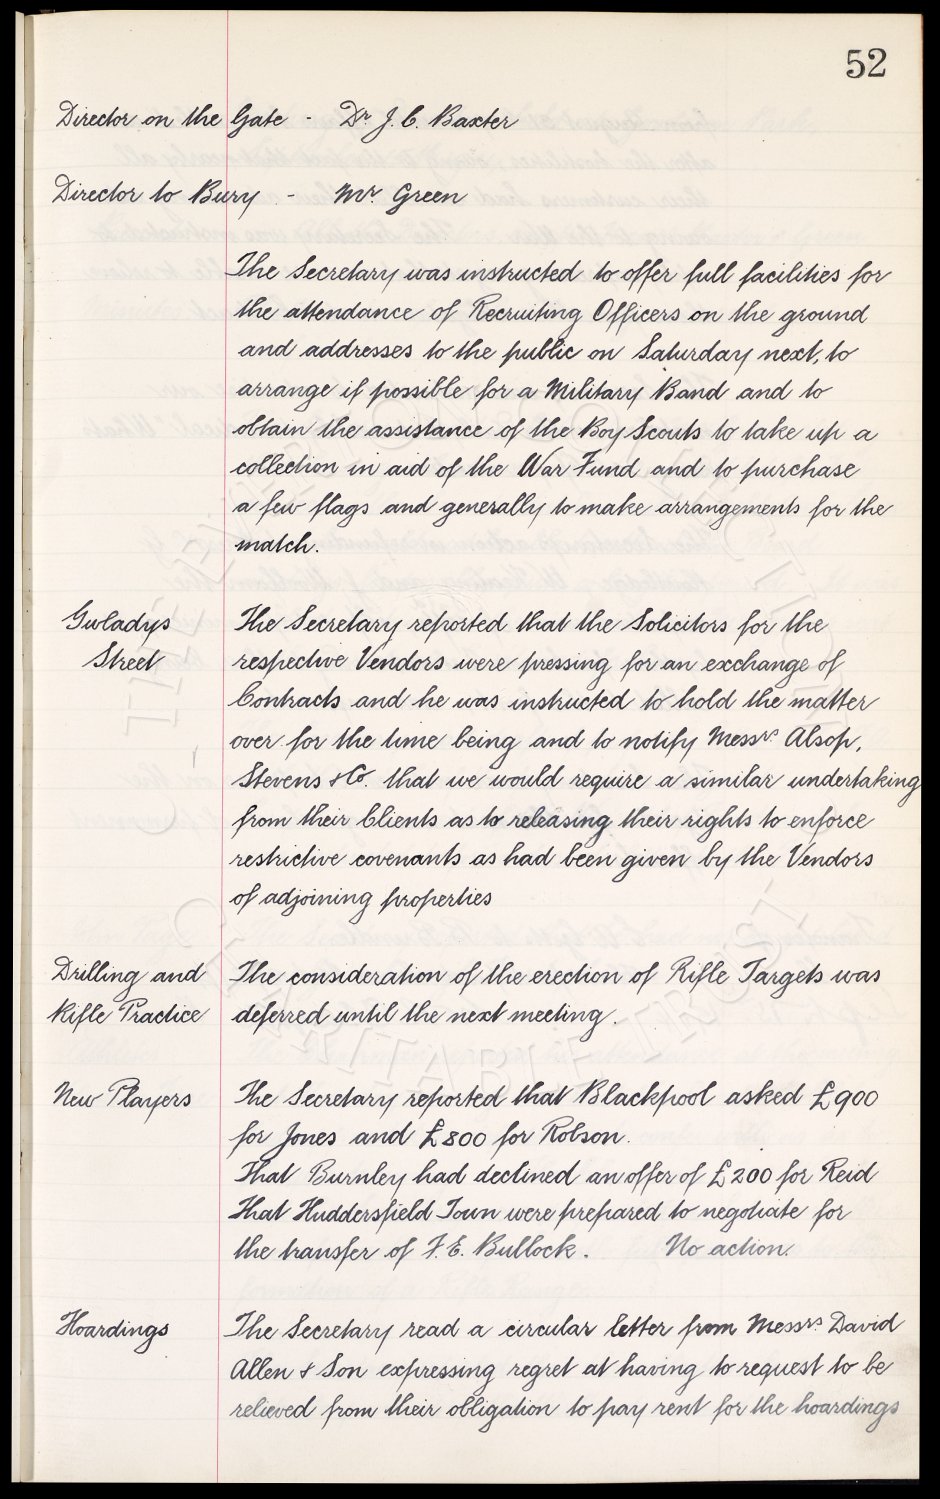 52
Director on the Gate - Dr J. C. Baxter
Director to Bury - Mr. Green
The Secretary was instructed to offer full facilities for
the attendance of Recruiting Officers on the ground
and addresses to the public on Saturday next, to
arrange if possible for a Military Band and to
obtain the assistance of the Boy Scouts to take up a
collection in aid of the War Fund and to purchase
a few flags and generally to make arrangements for the
match.
Gwladys Street
The Secretary reported that the Solicitors for the
respective Vendors were pressing for an exchange of
Contracts and he was instructed to hold the matter
over for the time being and to notify Messrs Alsop,
Stevens & Co. that we would require a similar undertaking
from their Clients as to releasing their rights to enforce
restrictive covenants as had been given by the Vendors
of adjoining properties
Drilling and Rifle Practice
The consideration of the erection of Rifle Targets was
deferred until the next meeting.
New Players
The Secretary reported that Blackpool asked £900
for Jones and £800 for Robson.
That Burnley had declined an offer of £200 for Reid
That Huddersfield Town were prepared to negotiate for
the transfer of F. E. Bullock. No action.
Hoardings
The Secretary read a circular letter from Messrs David
Allen & Son expressing regret at having to request to be
relieved from their obligation to pay rent for the hoardings
THE EVERTON COLLECTION
CHARITABLE TRUST